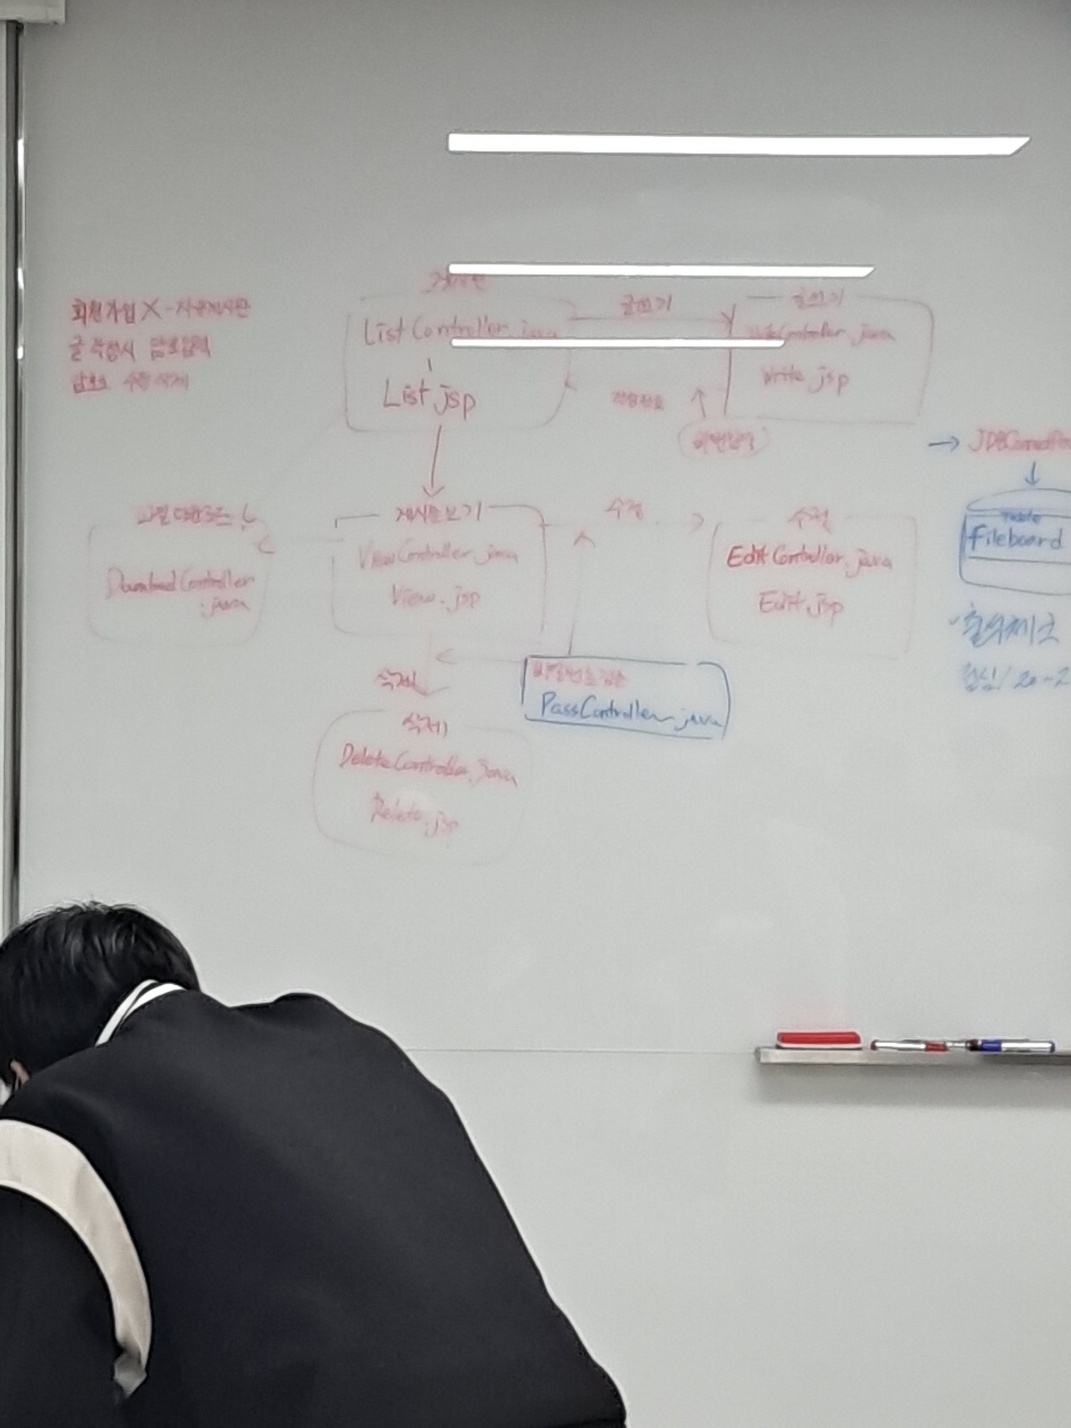 회원가입 X - 자유게시판
글 작성시 암호입력
수정 삭제
ListController.java
List.jsp
글쓰기
글쓰기
WriteController.java
Write.jsp
→ JDBConnectPo
Table
fileboard
파일 다운로드
DownloadController
.java
게시물보기
ViewController.java
View.jsp
수정
수정
EditController.java
Edit.jsp
비밀번호 검증
PassController.java
삭제
삭제
DeleteController.java
.jsp
출석체크